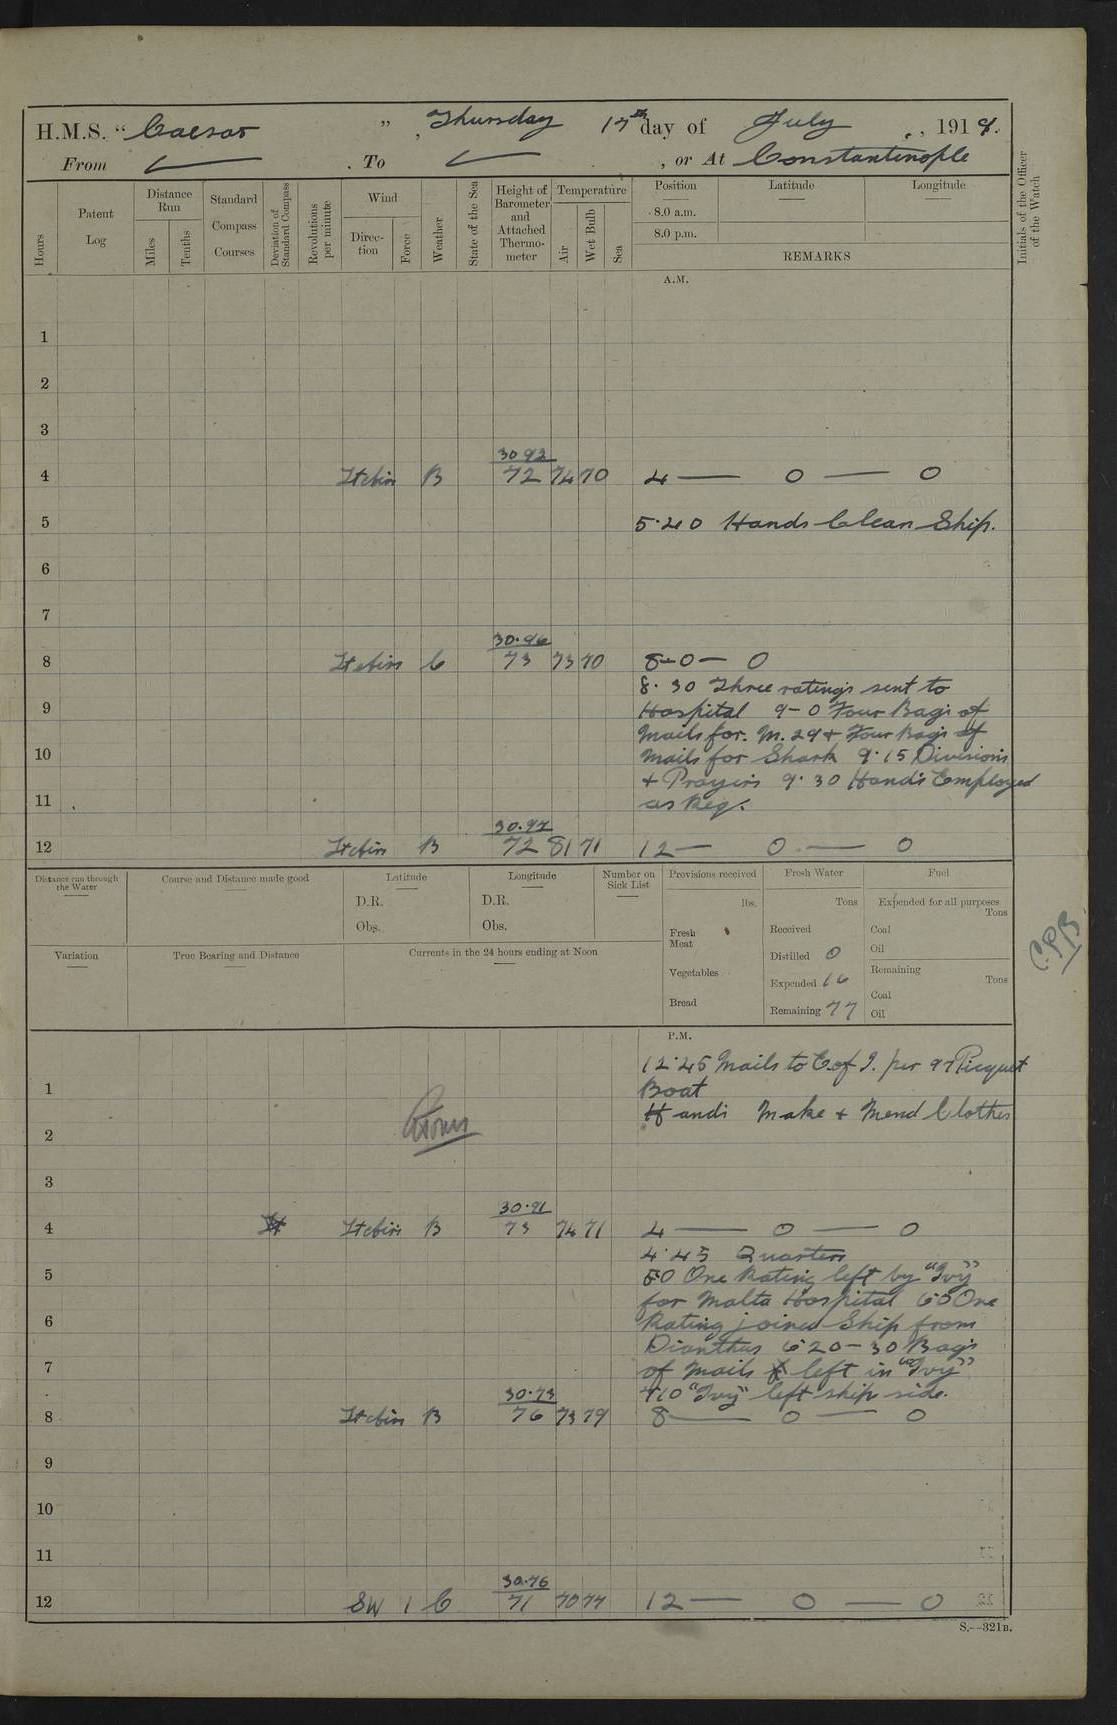 H.M.S. "Caesar", Thursday 17th day of July, 1919.
From ✓. To ✓, or At Constantinople
Hours
Patent Log
Distance Run
Miles
Tenths
Standard Compass Courses
Deviation of Standard Compass
Revolutions per minute
Wind
Direction
Force
Weather
State of the Sea
Height of Barometer and Attached Thermometer
Temperature
Air
Wet Bulb
Sea
Position
Latitude
Longitude
8.0 a.m.
8.0 p.m.
REMARKS
Initials of the Officer of the Watch
A.M.
1
2
3
30 92
4 Lt airs B 72 74 70 4 — 0 — 0
5 5·40 Hands Clean Ship.
6
7
30·96
8 Lt airs C 73 73 70 8 — 0 — 0
8·30 Three ratings sent to
9 Hospital 9-0 Four Bags of
Mails for M.29 + Four Bags of
10 Mails for Shark 9·15 Divisions
+ Prayers 9·30 Hands Employed
11 as Req.
30.97
12 Lt airs B 72 81 71 12 — 0 — 0
Distance run through the Water
Course and Distance made good
Latitude
Longitude
Number on Sick List
Provisions received
Fresh Water
Fuel
D.R.
D.R.
lbs.
Tons
Expended for all purposes
Tons
Obs.
Obs.
Fresh Meat
Received
Coal
Oil
Variation
True Bearing and Distance
Currents in the 24 hours ending at Noon
Distilled 0
Vegetables
Expended 16
Remaining
Tons
Bread
Remaining 77
Coal
Oil
P.M.
12·45 Mails to C. of I. per 97 Picquet
1 Boat
Hands Make + Mend Clothes
2
3
30·91
4 Lt airs B 73 74 71 4 — 0 — 0
4·45 Quarters
5 50 One Rating left by "Ivy"
for Malta Hospital 60 One
6 Rating joined Ship from
Dianthus 6·20 - 30 Bags
7 of Mails left in "Ivy"
30·73 710 "Ivy" left ship side.
8 Lt airs B 76 73 79 8 — 0 — 0
9
10
11
30·76
12 SW 1 C 71 70 74 12 — 0 — 0
S.—321B.